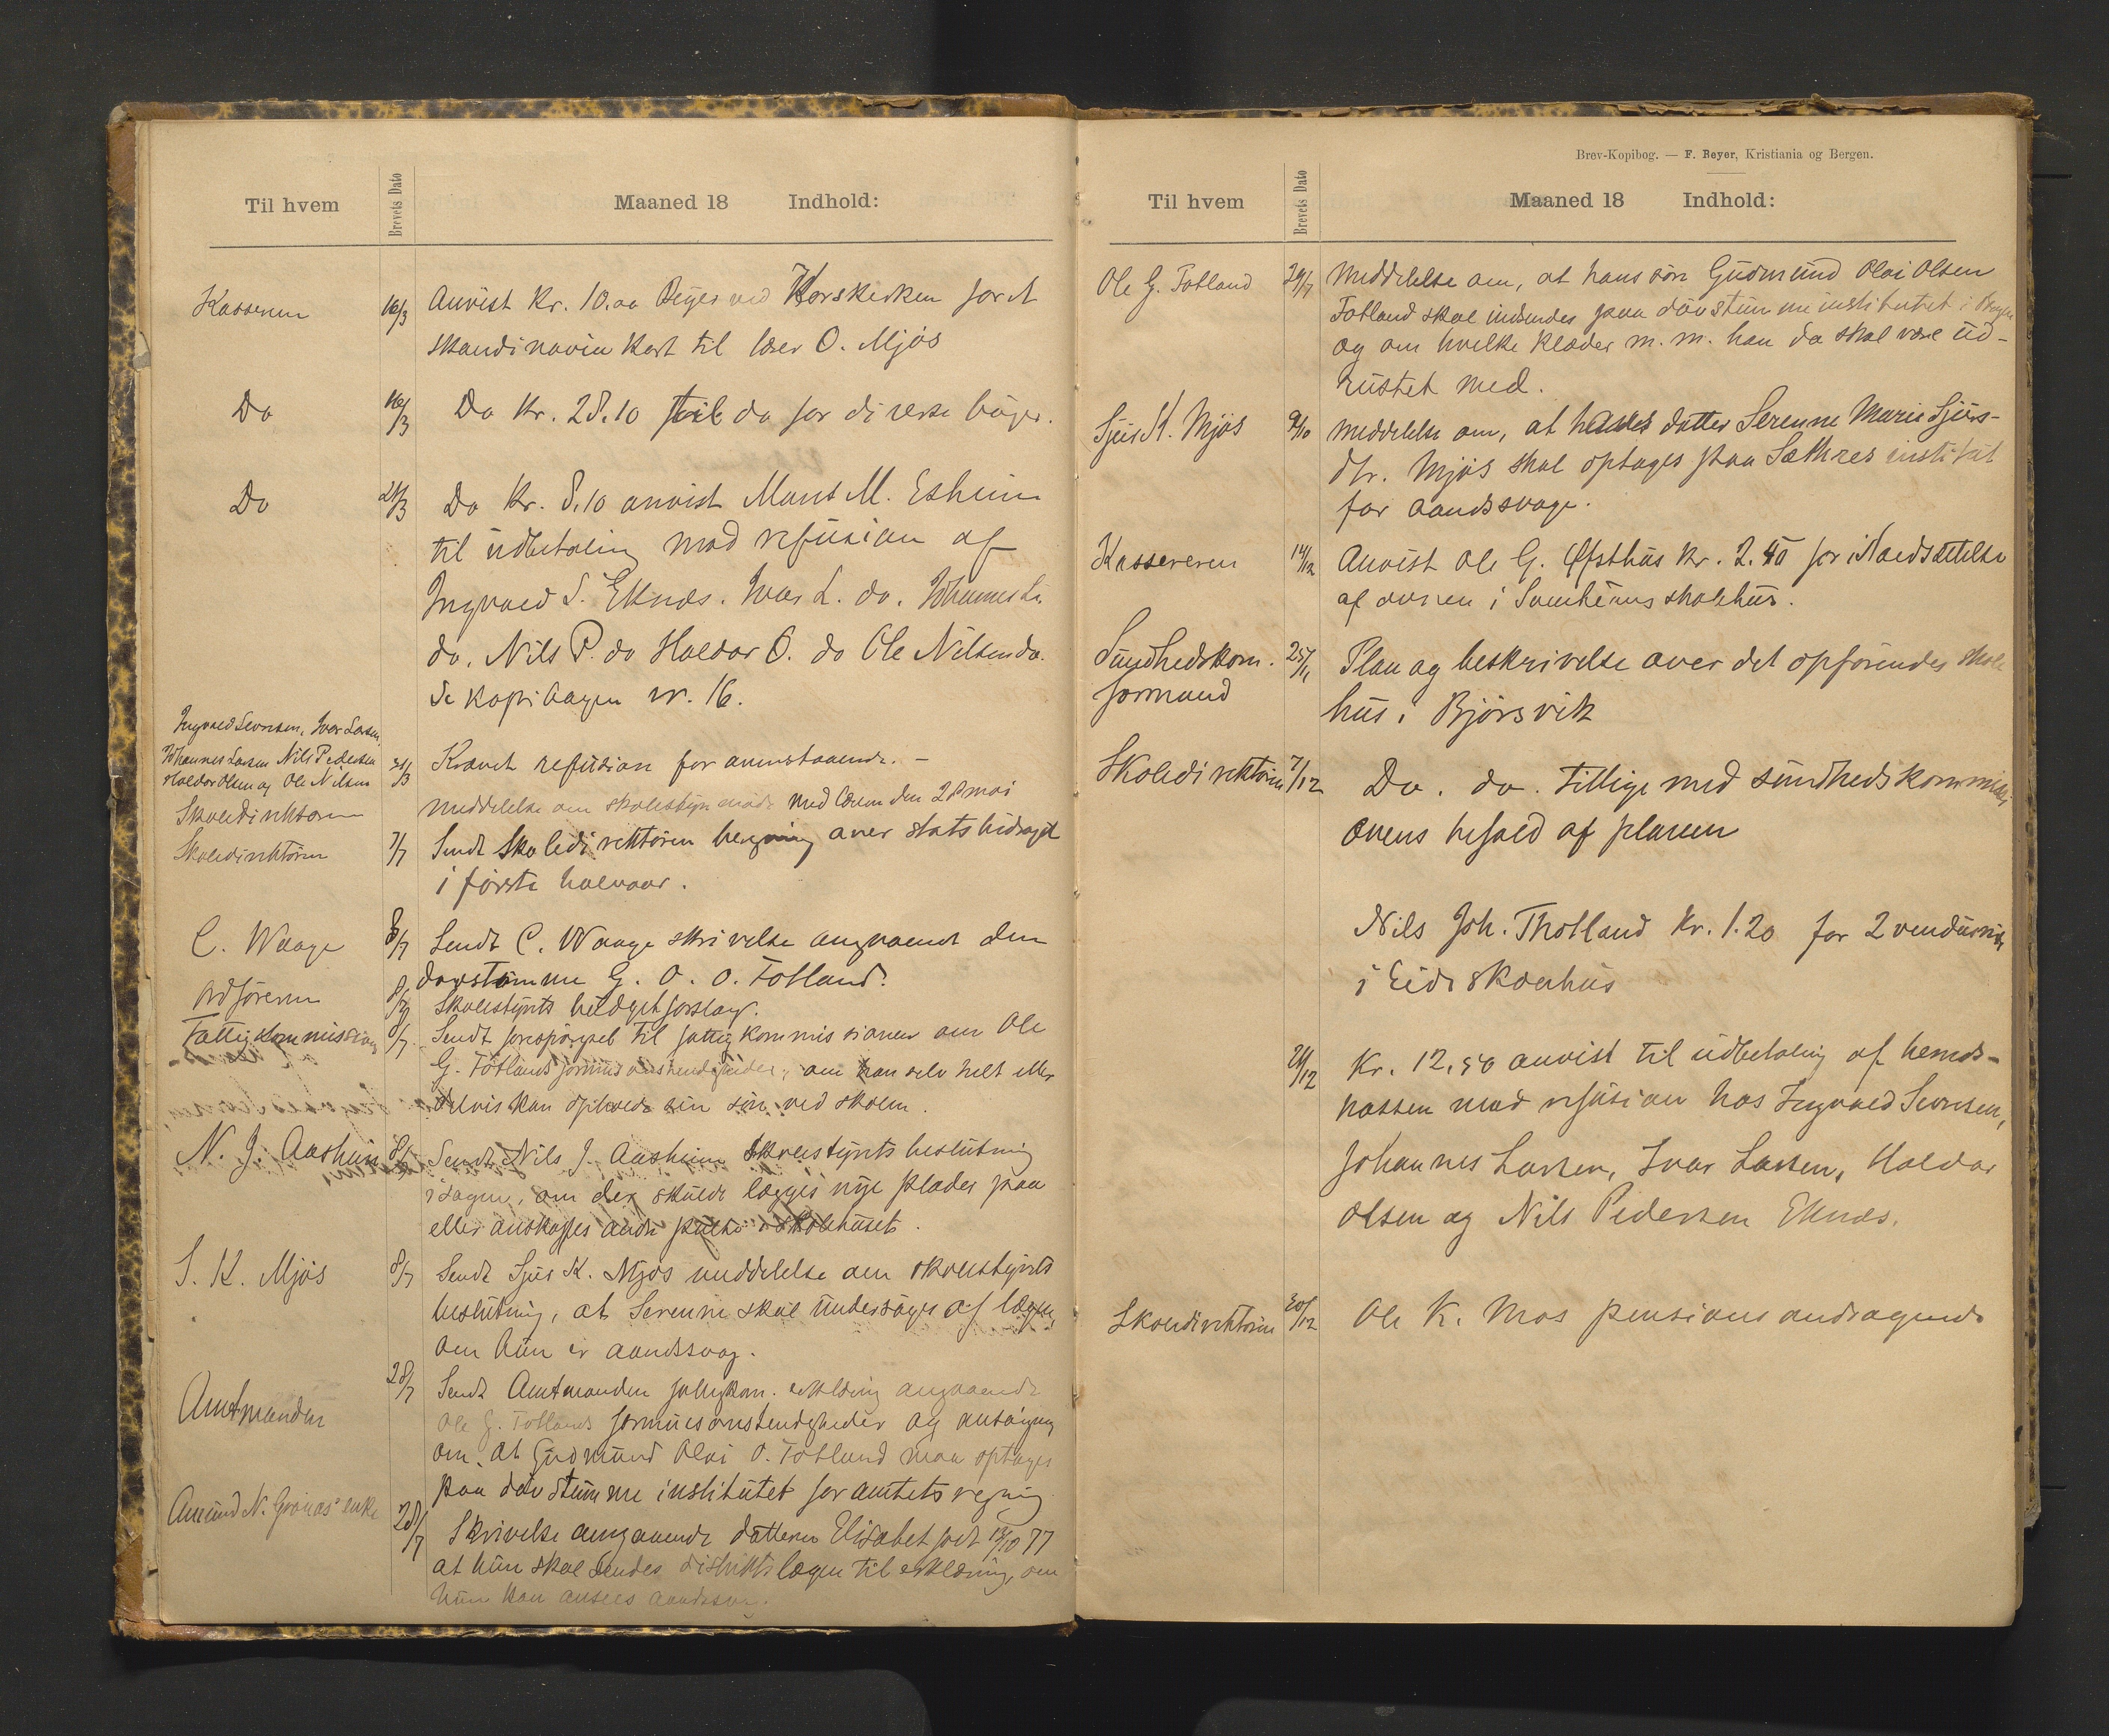 Til hvem Brevets Dato Maaned 18 Indhold:
Kasseren 16/3 Anvist Kr. 10.00 Beyer ved Korskirken for et
Skandinavia Kart til lærer O. Mjøs
Do 16/3 Do Kr. 28.10 til do for diverse bøger.
Do 21/3 Do Kr. 8.10 anvist Mons M. Eshein
til udbetaling mod refusion af
Ingvald S. Eknæs. Ivar L. do. Johannes L.
do. Nils P. do Haldor O. do Ole Nilsen do.
Se Kopibogen nr. 16.
Ingvald Sevrinsen, Ivar Larsen,
Johannes Larsen Nils Pedersen
Haldor Olsen og Ole Nilsen 21/3 Krævet refusion for ovenstaaende. –
Skoledirektøren Meddelelse om skolestyremøde med lærerne den 28 mai
Skoledirektøren 7/7 Sendt Skoledirektøren beregning over statsbidraget
i første halvaar.
C. Waage 8/7 Sendt C. Waage skrivelse angaaende den
døvstumme G. O. O. Totland.
Ordføreren 8/7 Skolestyrets budgetforslag.
Fattigkommissionen 8/7 Sendt forespørgsel til fattigkommissionen om Ole
G. Totlands formuesomstendigheder, om han selv helt eller
delvis kan opholde sin søn ved skolen.
N. J. Aasheim 8/7 Sendt Nils J. Aasheim Skolestyrets beslutning
i sagen, om der skulde lægges nye plader paa
eller anskaffes andre pulte i skolehuset.
S. K. Mjøs 8/7 Sendt Sjur K. Mjøs meddelelse om skolestyrets
beslutning, at Serenne skal undersøges af lægen,
om hun er aandssvag.
Amtmanden 28/7 Sendt Amtmanden fattigkom. erklæring angaaende
Ole G. Totlands formuesomstendigheder og ansøgning
om at Gudmund Olai O. Totland maa optages
paa døvstumme institutet for amtets regning
Amund N. Grønaas' enke 28/7 Skrivelse angaaende datteren Elisabet født 13/10 77
at hun skal sendes distriktslægen til erklæring, om
hun kan ansees aandssvag.
Brev-Kopibog. — F. Beyer, Kristiania og Bergen.
Til hvem Brevets Dato Maaned 18 Indhold:
Ole G. Totland 29/7 Meddelelse om, at hans søn Gudmund Olai Olsen
Totland skal indsendes paa døvstumme institutet i Bergen
og om hvilke klæder m. m. han da skal være ud-
rustet med.
Sjur K. Mjøs 9/10 Meddelelse om, at hans datter Serenne Marie Sjurs-
dtr. Mjøs skal optages paa Sæthres institut
for aandssvage.
Kassereren 14/12 Anvist Ole G. Øfsthus Kr. 2.40 for istandsættelse
af ovnen i Sveheims skolehus.
Sundhedskom. 25/11 Plan og beskrivelse over det opførendes skole
formand hus i Bjørsvik
Skoledirektøren 7/12 Do. do. tillige med sundhedskommissi
onens befald af planen
Nils Joh. Thotland Kr. 1.20 for 2 vinduer
i Eide skolehus
21/12 Kr. 12,50 anvist til udbetaling af herreds-
kassen mod refusion hos Ingvald Sevrinsen,
Johannes Larsen, Ivar Larsen, Haldor
Olsen og Nils Pedersen Eknæs.
Skoledirektøren 30/12 Ole K. Mos pensions andragende